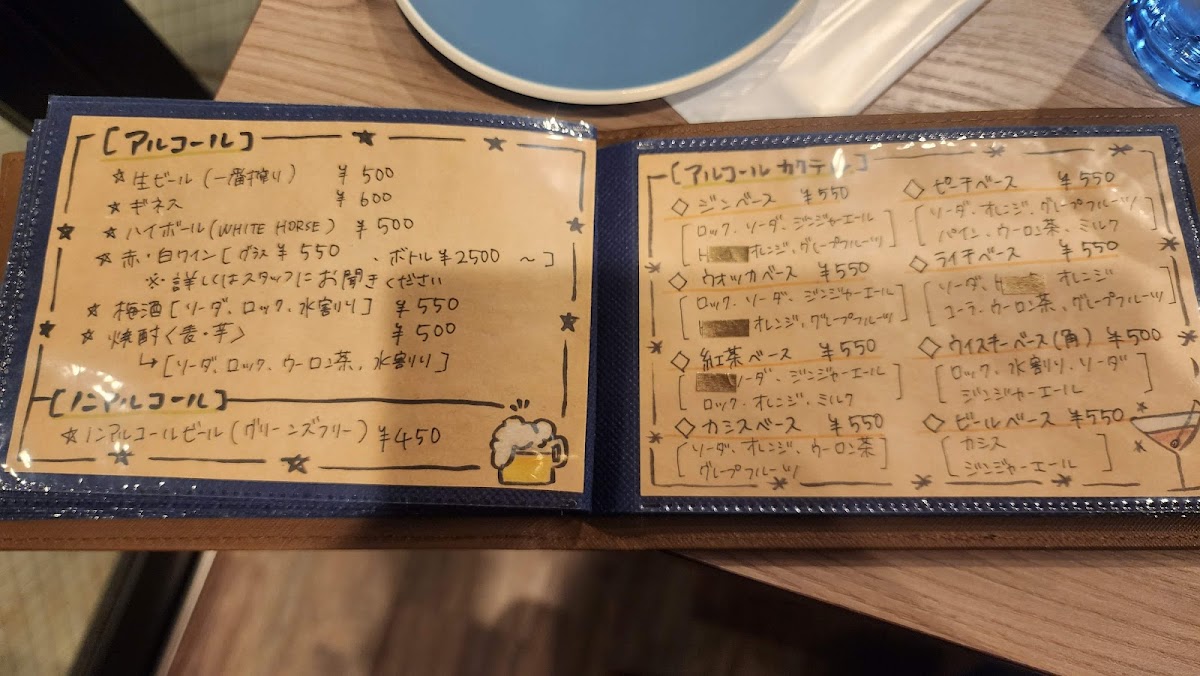 [アルコール]
☆生ビール(一番搾り) ¥500
☆ギネス ¥600
☆ハイボール(WHITE HORSE) ¥500
☆赤・白ワイン[グラス ¥550、ボトル¥2500〜]
※詳しくはスタッフにお聞きください
☆梅酒[ソーダ、ロック、水割り] ¥550
☆焼酎<麦・芋> ¥500
↳[ソーダ、ロック、ウーロン茶、水割り]
[ノンアルコール]
☆ノンアルコールビール(グリーンズフリー) ¥450
[アルコールカクテ
◇ジンベース ¥550
[ロック、ソーダ、ジンジャーエール
オレンジ、グレープフルーツ]
◇ウォッカベース ¥550
[ロック、ソーダ、ジンジャーエール
オレンジ、グレープフルーツ]
◇紅茶ベース ¥550
[ソーダ、ジンジャーエール
ロック、オレンジ、ミルク]
◇カシスベース ¥550
[ソーダ、オレンジ、ウーロン茶
グレープフルーツ]
◇ピーチベース ¥550
[ソーダ、オレンジ、グレープフルーツ
パイン、ウーロン茶、ミルク]
◇ライチベース ¥550
[ソーダ、オレンジ
コーラ、ウーロン茶、グレープフルーツ]
◇ウイスキーベース(角) ¥500
[ロック、水割り、ソーダ
ジンジャーエール]
◇ビールベース ¥550
[カシス
ジンジャーエール]